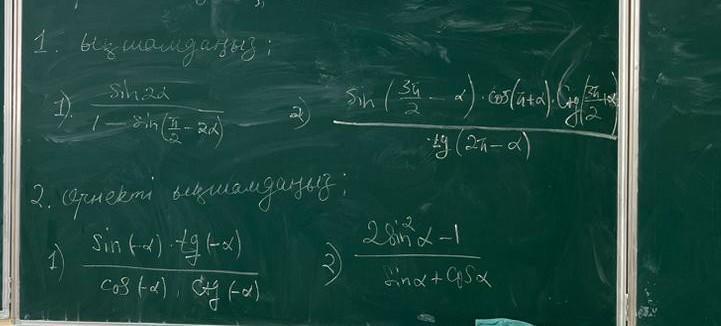 1. ықшамдаңыз;
1). sin2α / 1 - sin(π/2 - 2α)
2) sin(3π/2 - α) · cos(π+α) · Ctg(3π/2+α) / tg(2π-α)
2. Өрнекті ықшамдаңыз;
1) sin(-α) · tg(-α) / cos(-α) · Ctg(-α)
2) 2sin²α - 1 / sinα + cosα